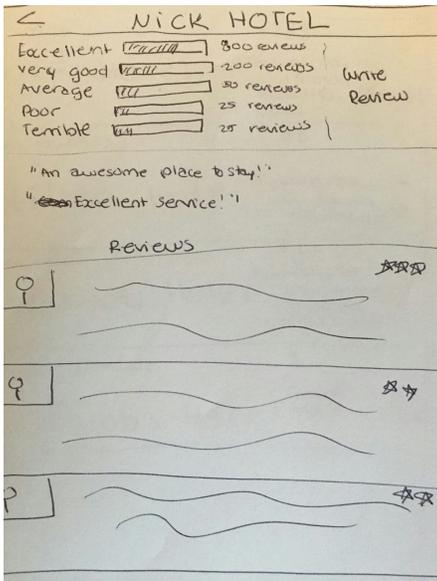 NICK HOTEL
Excellent 800 reviews
very good 200 reviews
Average 50 reviews
Poor 25 reviews
Terrible 25 reviews
Write
Review
"An awesome place to stay!"
"Excellent service!"
Reviews